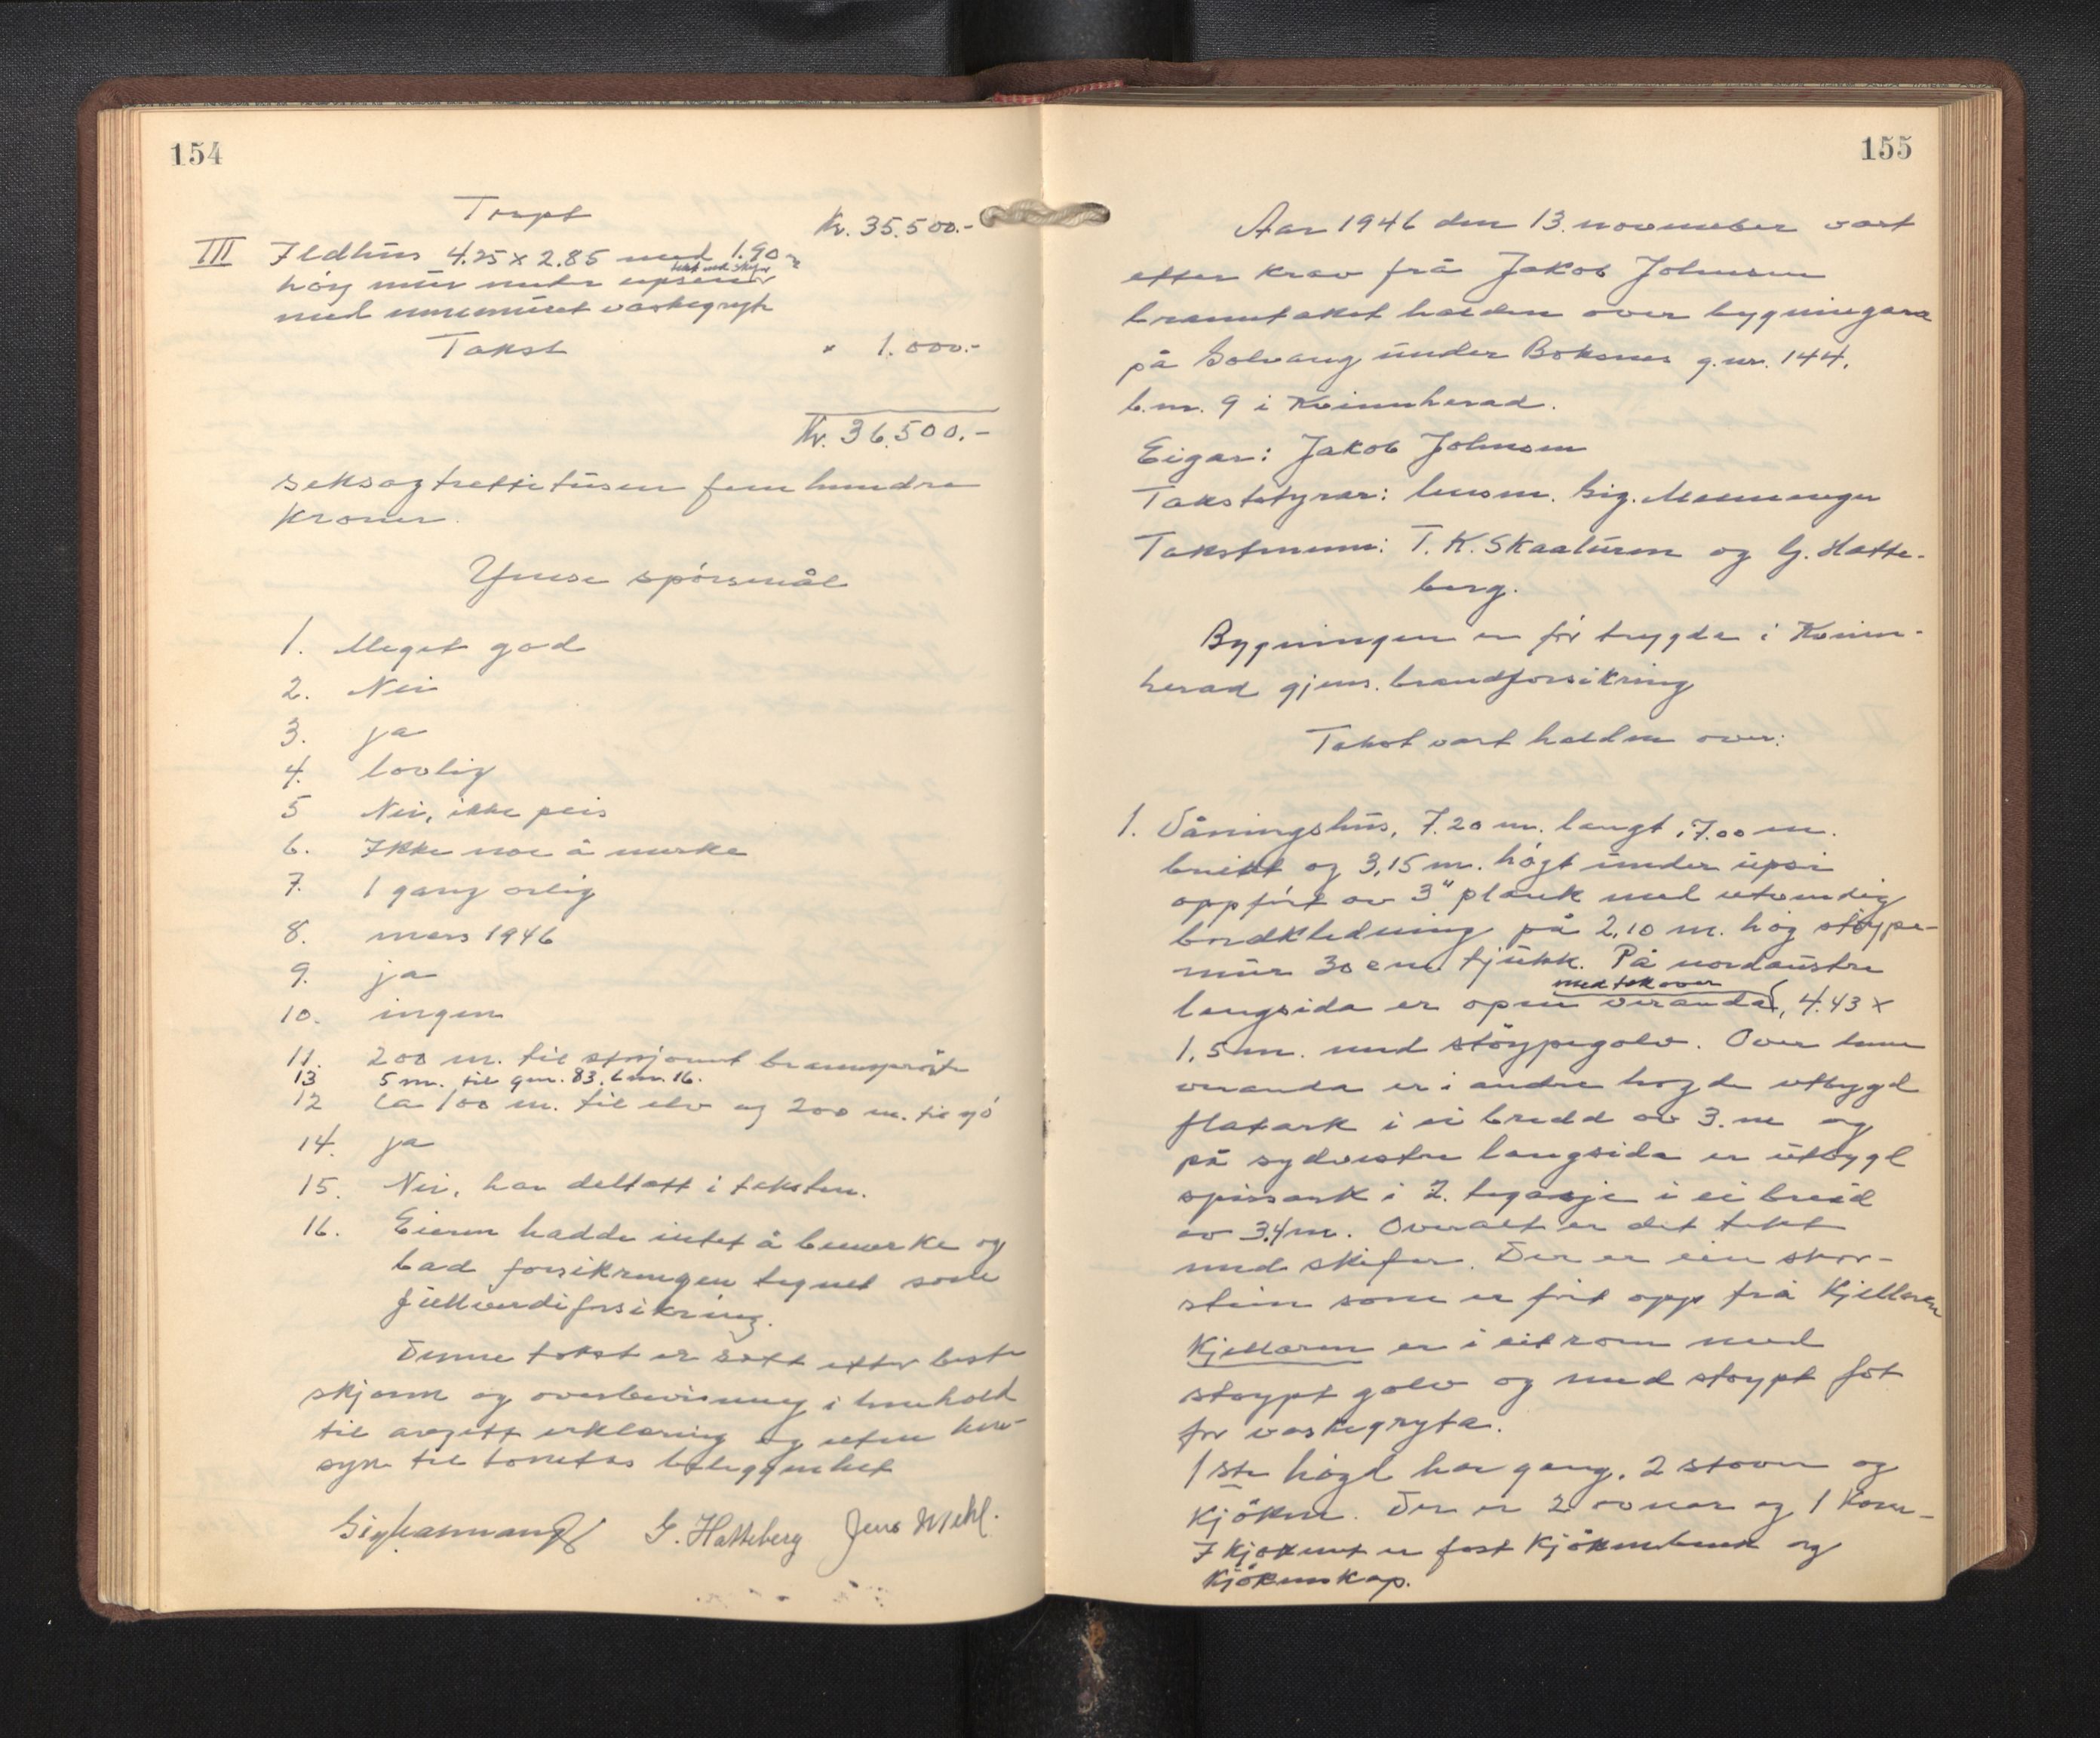 154
Trspt Kr. 35.500.-
III Ildhus 4.25 x 2.85 med 1.90 m
tekt med skifer
høg mur under upsene
med innmuret vaskegryte
Takst " 1.000.-
Kr. 36.500.-
seksogtrettitusen fem hundre
kroner.
Ymse spörsmål
1. Meget god
2. Nei
3. ja
4. lovlig
5 Nei, ikke peis
6. Ikke noe å merke
7. 1 gang årlig
8. mars 1946
9. ja
10. ingen
11. 200 m. til brannsprøjte
13 5 m. til gnr. 83. bnr. 16.
12 ca 100 m. til elv og 200 m. til sjö
14. ja
15. Nei, har deltatt i taksten.
16. Eieren hadde intet å bemerke og
bad forsikringen tegnet som
fullverdiforsikring.
Denne takst er satt etter beste
skjönn og overbevisning i henhold
til avgitt erklæring og uten hen-
syn til tomtas beliggenhet
G. Hatteberg Jens Mehl.
155
Aar 1946 den 13. november vart
etter krav frå Jakob Johnsen
branntakst halden over bygningara
på Solvang under Boksnes g.nr. 144,
b.nr. 9 i Kvinnherad.
Eigar: Jakob Johnsen
Takststyrar: lensm. Sig.
Takstmenn: T. K. Skaaluren og G. Hatte-
berg.
Bygningen er för trygda i Kvinn-
herad gjens. brandforsikring
Takst vart halden over:
1. Våningshus, 7.20 m. langt, 7.00 m.
breitt og 3,15 m. högt under upsi
oppfört av 3" plank med utvendig
bordkledning på 2,10 m. hög støype-
mur 30 cm tjukk. På nordaustre
med tak over
langsida er open veranda, 4.43 x
1,5 m. med støypegolv. Over denne
veranda er i andre högde utbygd
flatark i ei bredd av 3. m og
på sydvestre langsida er utbygd
spissark i 2. etasje i ei breid
av 3,4 m. Overalt er det tekt
med skifer. Der er ein skor-
stein som er fört opp frå kjellaren
Kjellaren er i eit rom med
støypt golv og med støypt fot
for vaskegryta.
1ste högd har gang, 2 stover og
kjöken. Der er 2 ovnar og 1 kom-
I kjökenet er fast kjökenbenk og
kjökenskap.